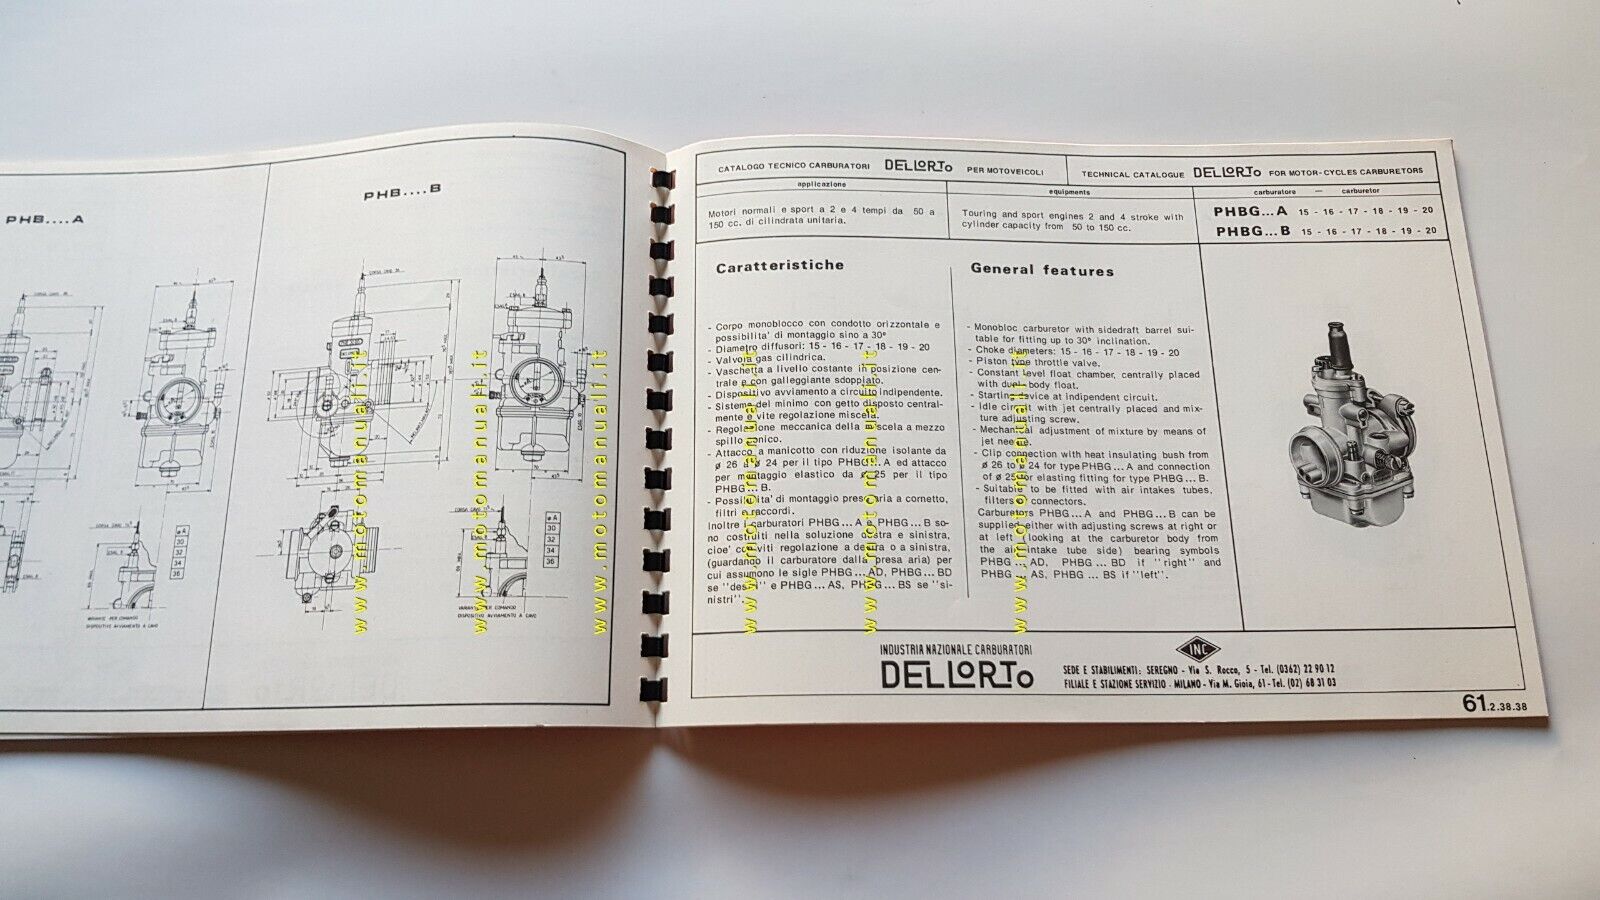 PHB....A
PHB....B
CORSA CAVO
VARIANTE PER COMANDO
DISPOSITIVO AVVIAMENTO A CAVO
ø A
30
32
34
36
VARIANTE PER COMANDO
DISPOSITIVO AVVIAMENTO A CAVO
ø A
30
32
34
36
CATALOGO TECNICO CARBURATORI DELLORTO PER MOTOVEICOLI
TECHNICAL CATALOGUE DELLORTO FOR MOTOR-CYCLES CARBURETORS
applicazione
equipments
carburatore — carburetor
Motori normali e sport a 2 e 4 tempi da 50 a
150 cc. di cilindrata unitaria.
Touring and sport engines 2 and 4 stroke with
cylinder capacity from 50 to 150 cc.
PHBG...A 15 - 16 - 17 - 18 - 19 - 20
PHBG...B 15 - 16 - 17 - 18 - 19 - 20
Caratteristiche
- Corpo monoblocco con condotto orizzontale e
possibilita' di montaggio sino a 30°
- Diametro diffusori: 15 - 16 - 17 - 18 - 19 - 20
- Valvola gas cilindrica.
- Vaschetta a livello costante in posizione cen-
trale e con galleggiante sdoppiato.
- Dispositivo avviamento a circuito indipendente.
- Sistema del minimo con getto disposto central-
mente e vite regolazione miscela.
- Regolazione meccanica della miscela a mezzo
spillo conico.
- Attacco a manicotto con riduzione isolante da
ø 26 a ø 24 per il tipo PHBG...A ed attacco
per montaggio elastico da ø 25 per il tipo
PHBG...B.
- Possibilita' di montaggio presa aria a cornetto,
filtri e raccordi.
Inoltre i carburatori PHBG...A e PHBG...B so-
no costruiti nella soluzione destra e sinistra,
cioe' con viti regolazione a destra o a sinistra,
(guardando il carburatore dalla presa aria) per
cui assumono le sigle PHBG...AD, PHBG...BD
se "destri" e PHBG...AS, PHBG...BS se "si-
nistri".
General features
- Monobloc carburetor with sidedraft barrel sui-
table for fitting up to 30° inclination.
- Choke diameters: 15 - 16 - 17 - 18 - 19 - 20
- Piston type throttle valve.
- Constant level float chamber, centrally placed
with duel body float.
- Starting device at indipendent circuit.
- Idle circuit with jet centrally placed and mix-
ture adjusting screw.
- Mechanical adjustment of mixture by means of
jet needle.
- Clip connection with heat insulating bush from
ø 26 to ø 24 for type PHBG...A and connection
of ø 25 for elasting fitting for type PHBG...B.
- Suitable to be fitted with air intakes tubes,
filters or connectors.
Carburetors PHBG...A and PHBG...B can be
supplied either with adjusting screws at right or
at left (looking at the carburetor body from
the air intake tube side) bearing symbols
PHBG...AD, PHBG...BD if "right" and
PHBG...AS, PHBG...BS if "left".
INDUSTRIA NAZIONALE CARBURATORI
DELLORTO
INC
SEDE E STABILIMENTI: SEREGNO - Via S. Rocco, 5 - Tel. (0362) 22 90 12
FILIALE E STAZIONE SERVIZIO - MILANO - Via M. Gioia, 61 - Tel. (02) 68 31 03
61.2.38.38
www.motomanuali.it
www.motomanuali.it
www.motomanuali.it
www.motomanuali.it
www.motomanuali.it
www.motomanuali.it